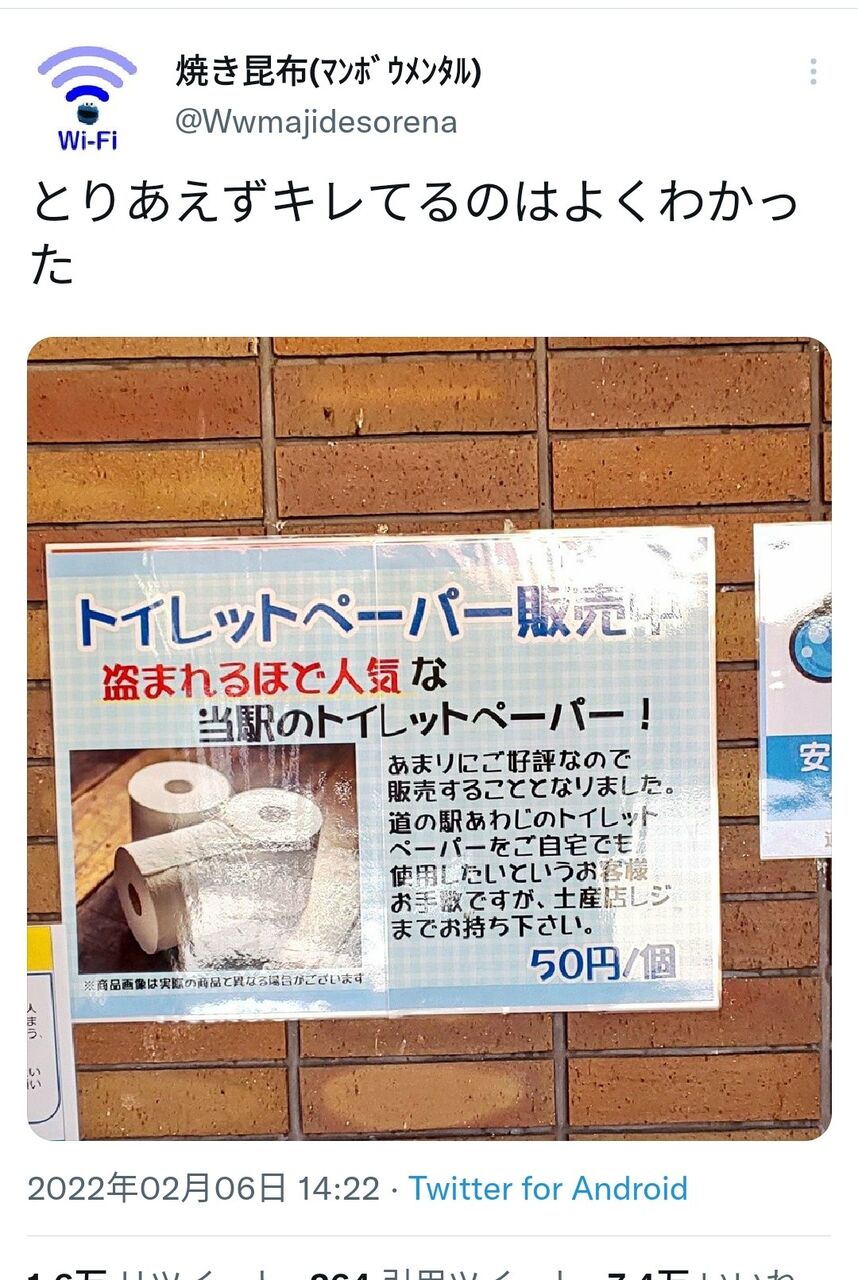 焼き昆布(ﾏﾝﾎﾞｳﾒﾝﾀﾙ)
@Wwmajidesorena
Wi-Fi
とりあえずキレてるのはよくわかっ
た
トイレットペーパー販売中
盗まれるほど人気な
当駅のトイレットペーパー！
あまりにご好評なので
販売することとなりました。
道の駅あわじのトイレット
ペーパーをご自宅でも
使用したいというお客様
お手数ですが、土産店レジ
までお持ち下さい。
50円/個
※商品画像は実際の商品と異なる場合がございます
安
2022年02月06日 14:22 · Twitter for Android